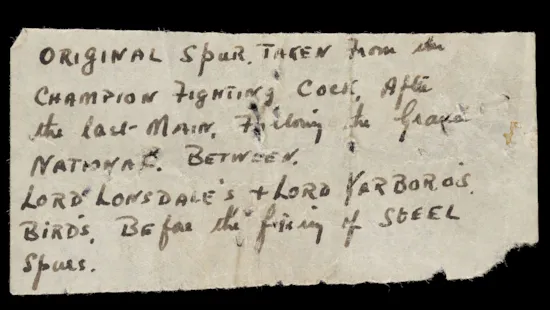 ORIGINAL SPUR. TAKEN From the
CHAMPION FIGHTING COCK, After
the last MAIN. Following the Grand
NATIONAL. BETWEEN.
LORD LONSDALE'S + LORD YARBORO'S.
BIRDS, BEfore the fixing of STEEL
Spurs.